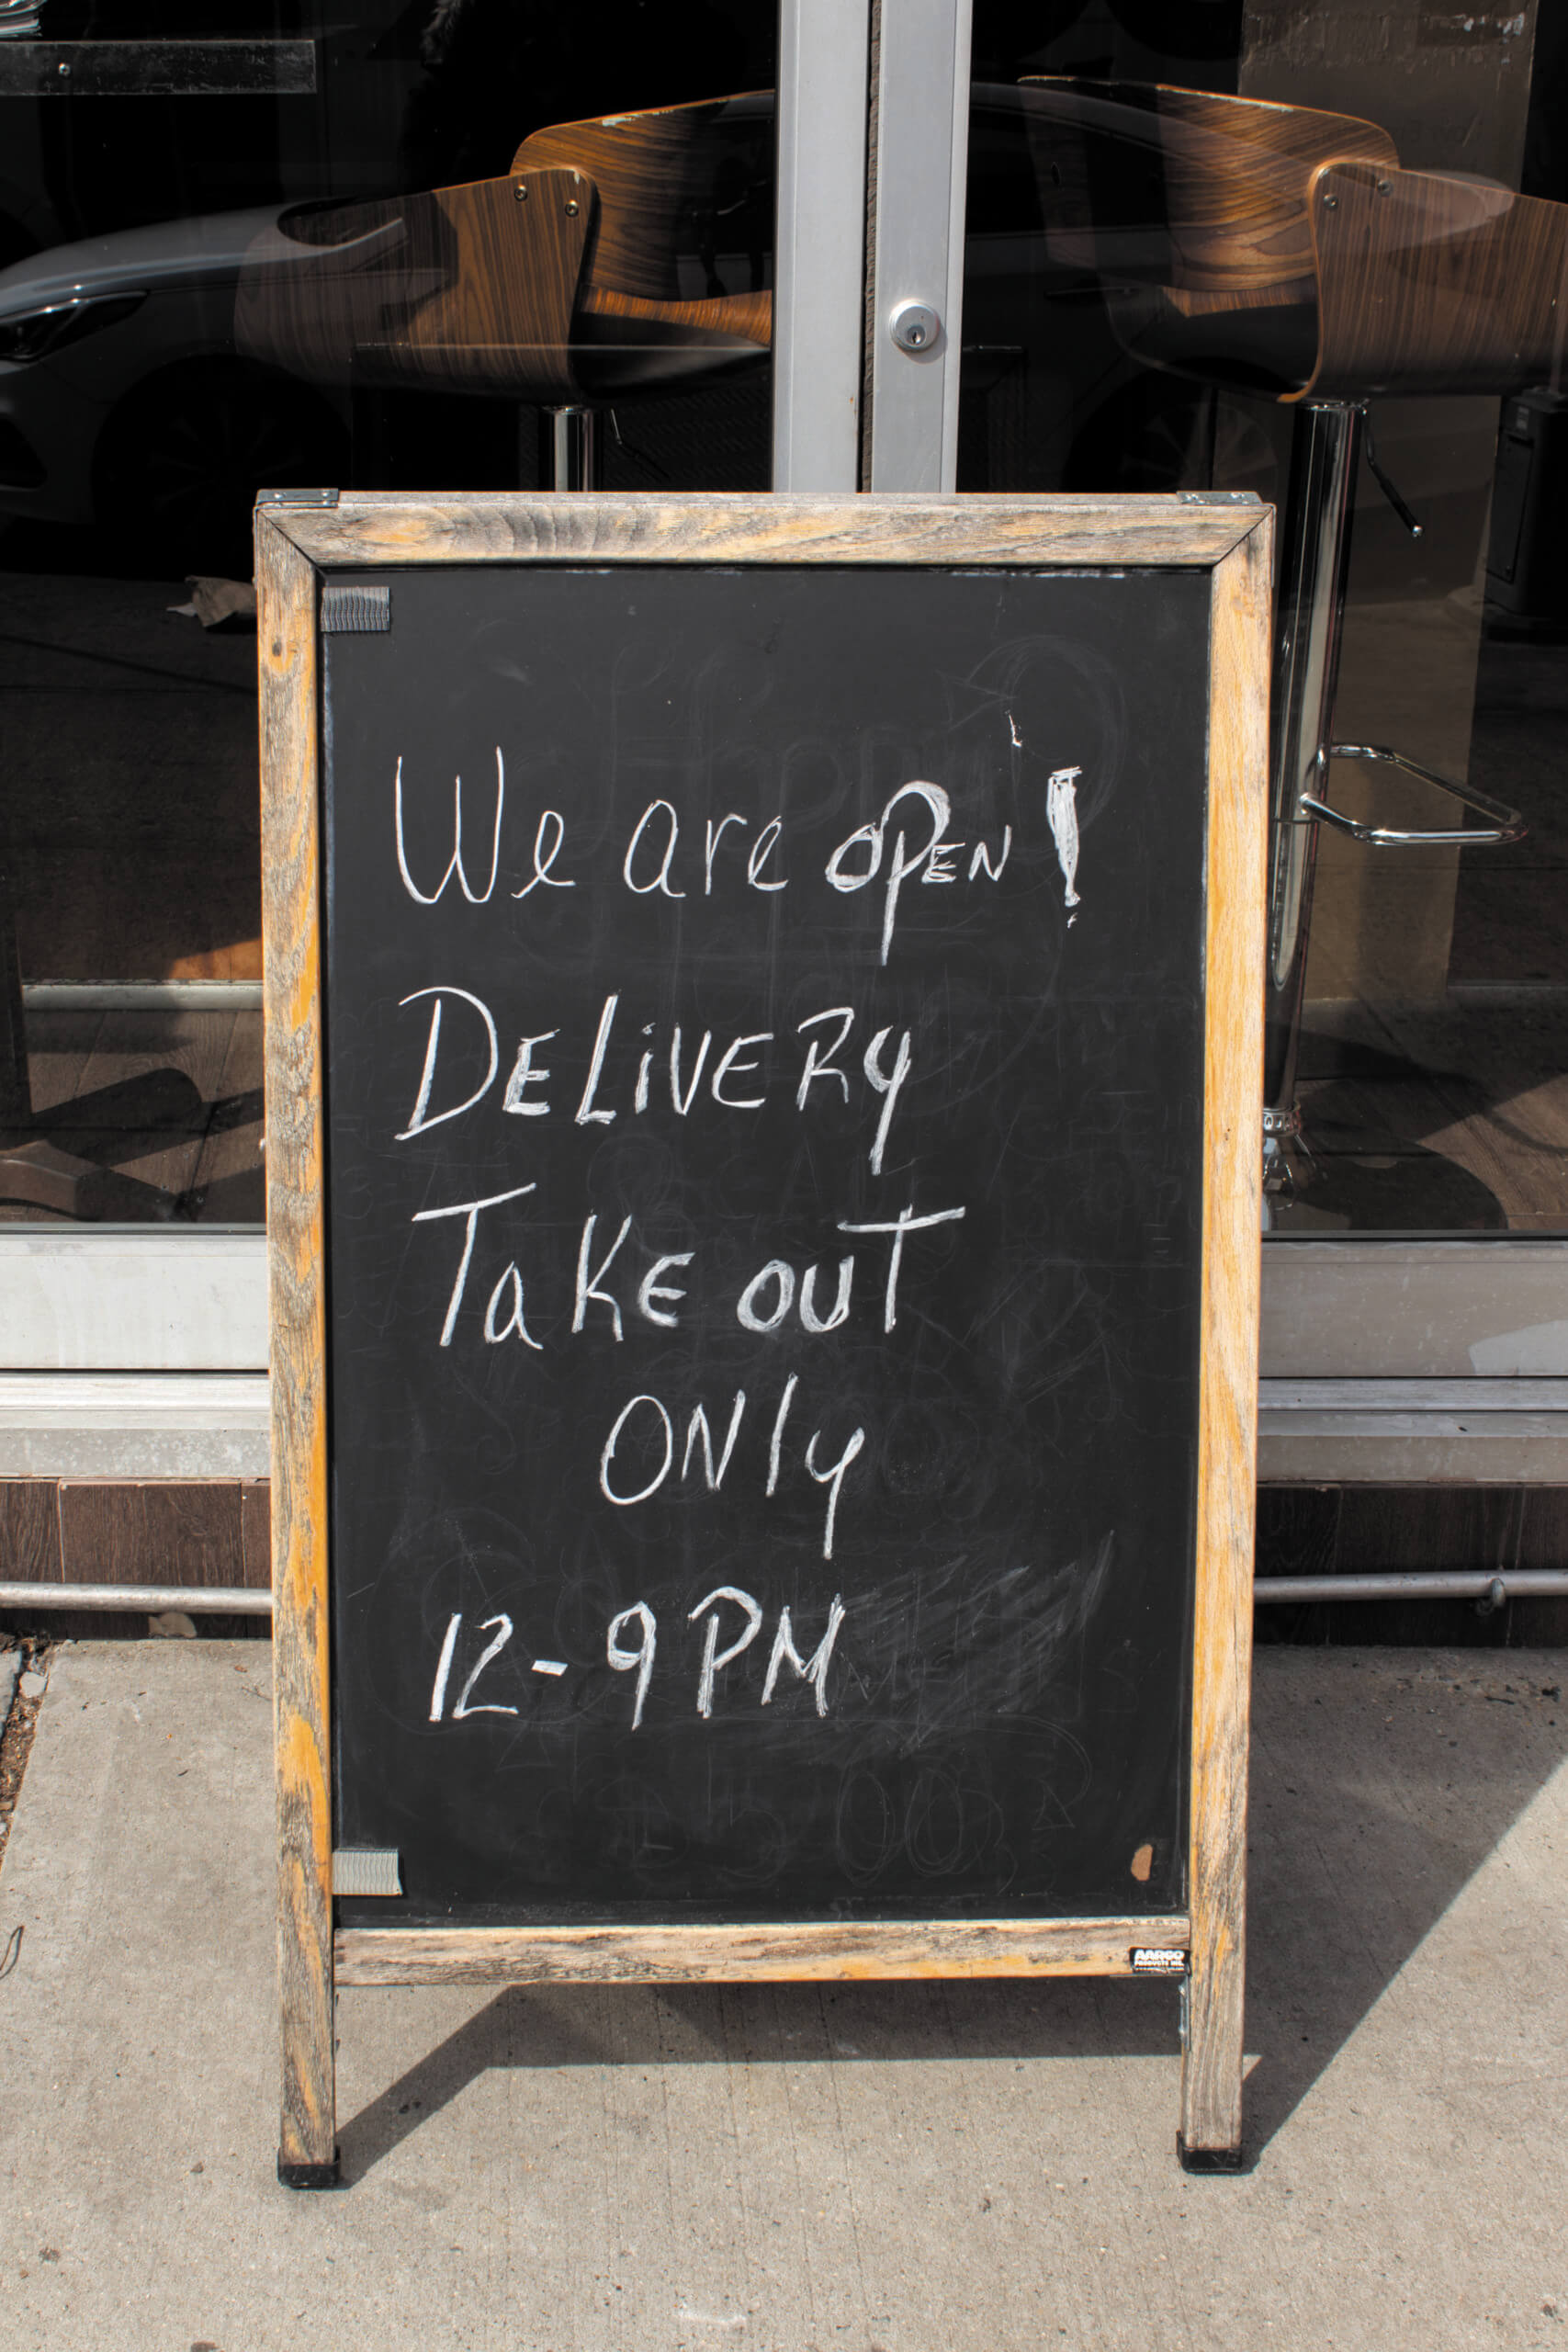 We are OPEN!
DELiVERY
TaKE OUT
ONly
12-9 PM
AARCO
PRODUCTS INC.